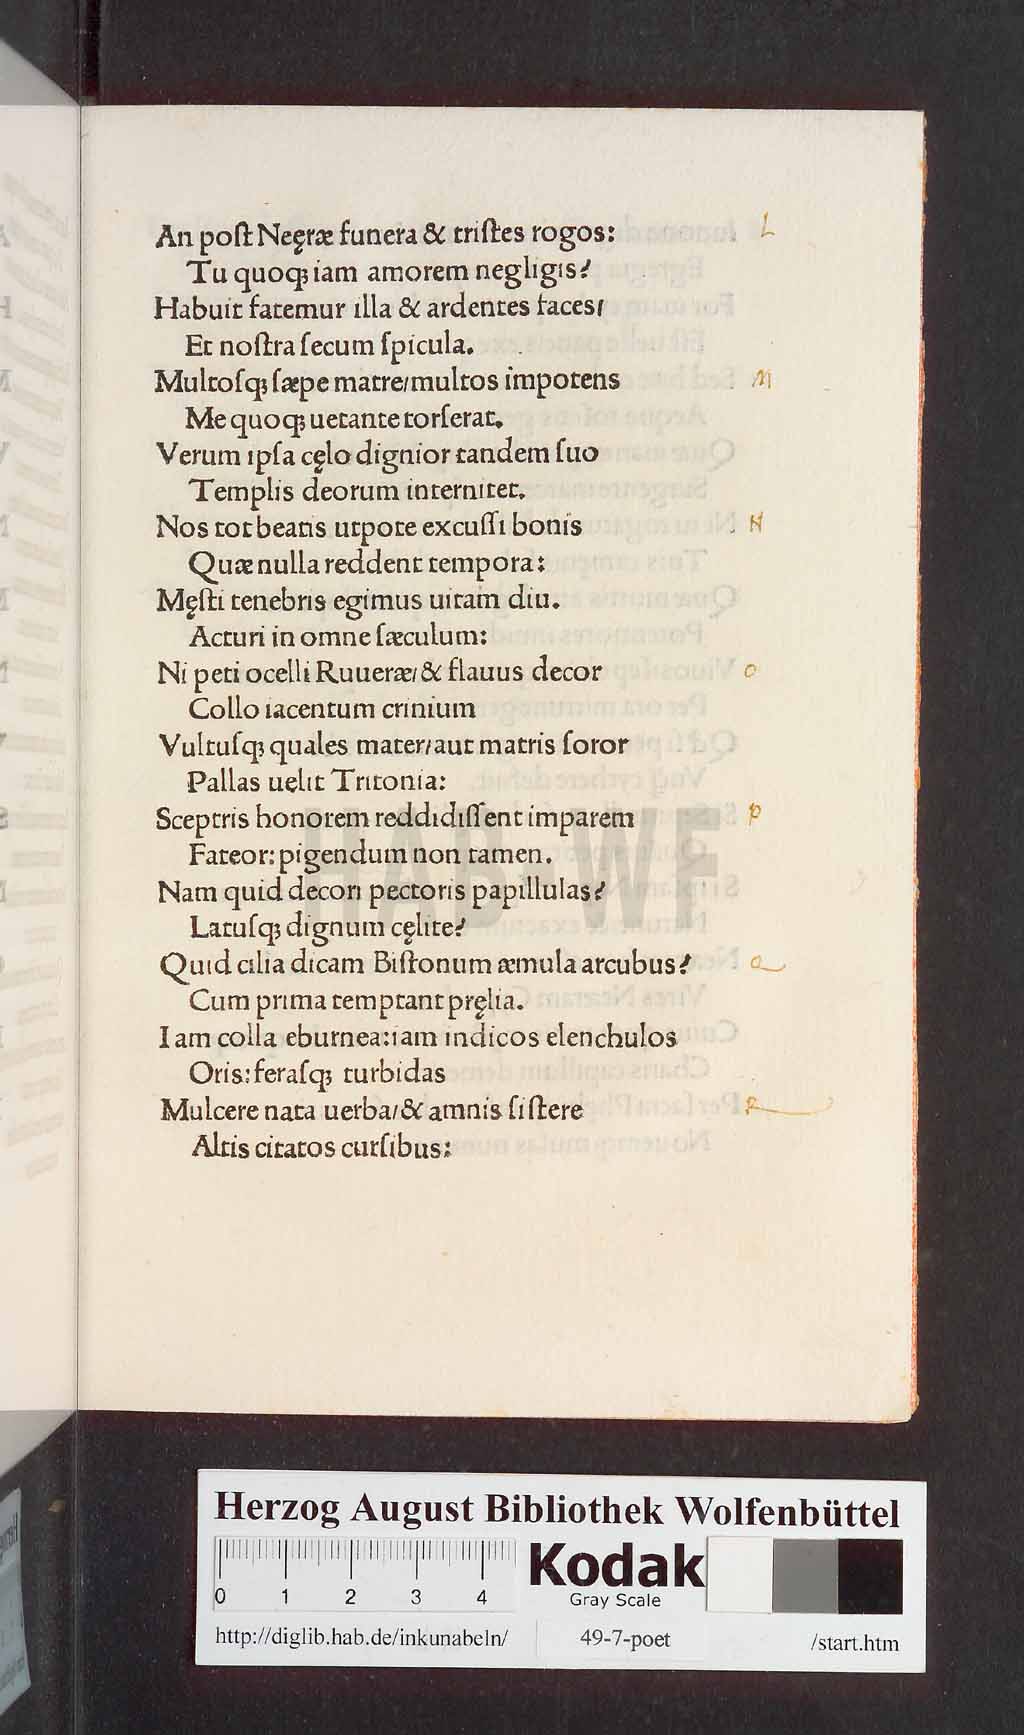 An poſt Neęræ funera & triſtes rogos: L
Tu quoqꝫ iam amorem negligis?
Habuit fatemur illa & ardentes faces/
Et noſtra ſecum ſpicula.
Multoſqꝫ ſæpe matre/multos impotens M
Me quoqꝫ uetante torſerat.
Verum ipſa cęlo dignior tandem ſuo
Templis deorum internitet.
Nos tot beatis utpote excuſſi bonis N
Quæ nulla reddent tempora:
Męſti tenebris egimus uitam diu.
Acturi in omne ſæculum:
Ni peti ocelli Ruueræ/& flauus decor O
Collo iacentum crinium
Vultuſqꝫ quales mater/aut matris ſoror
Pallas uęlit Tritonia:
Sceptris honorem reddidiſſent imparem P
Fateor: pigendum non tamen.
Nam quid decori pectoris papillulas?
Latuſqꝫ dignum cęlite?
Quid cilia dicam Biſtonum æmula arcubus? Q
Cum prima temptant pręlia.
Iam colla eburnea:iam indicos elenchulos
Oris: feraſqꝫ turbidas
Mulcere nata uerba/& amnis ſiſtere R
Altis citatos curſibus:
HAB WF
Herzog August Bibliothek Wolfenbüttel
0 1 2 3 4
Kodak
Gray Scale
http://diglib.hab.de/inkunabeln/ 49-7-poet /start.htm